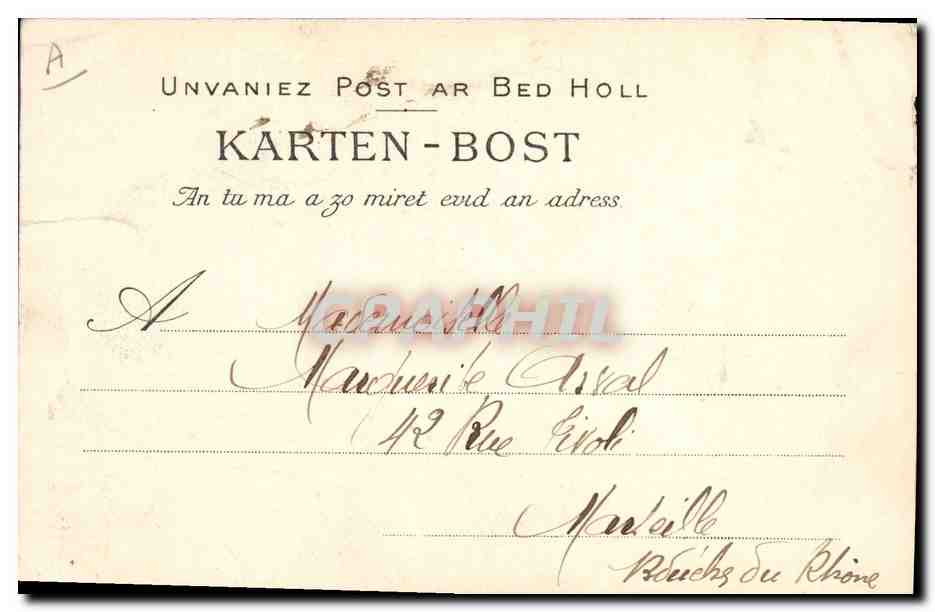 A
UNVANIEZ POST AR BED HOLL
KARTEN-BOST
An tu ma a zo miret evid an adress.
A Mademoiselle
Marguerite
42 Rue Tivoli
Marseille
Bouches du Rhône
CPAPHIL